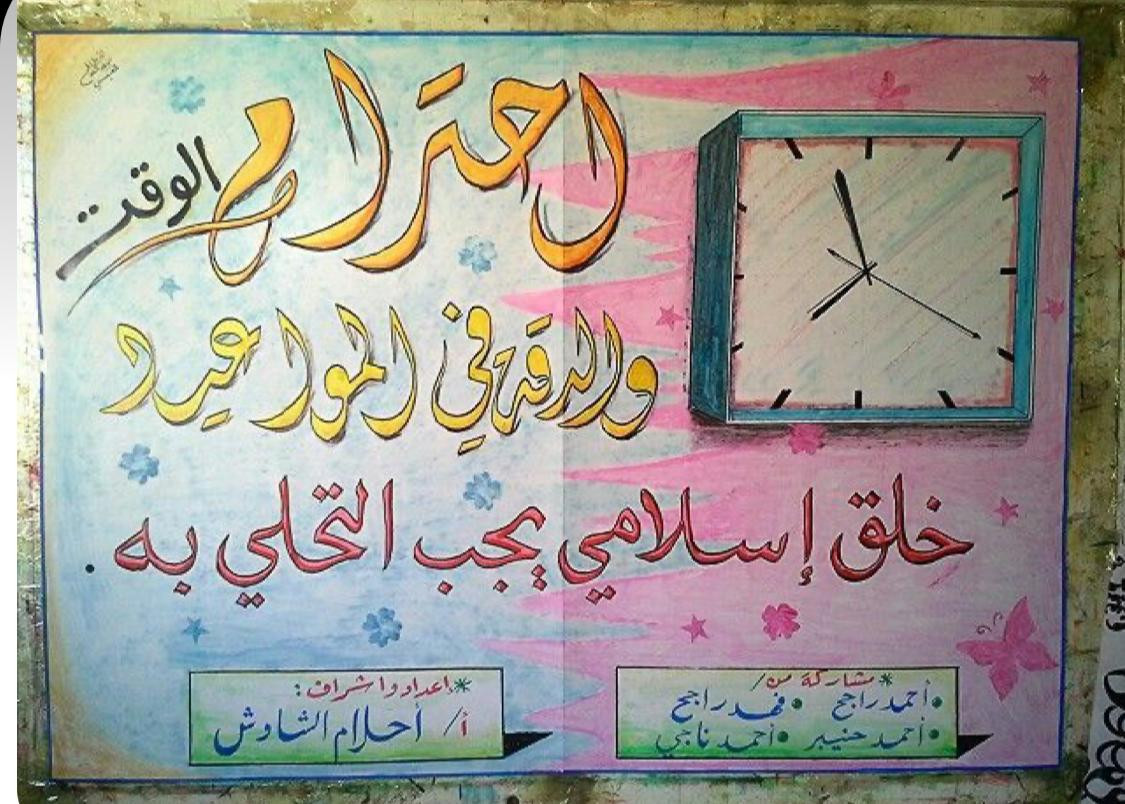 احترام الوقت
والدقة في المواعيد
خلق إسلامي يجب التحلي به .
* مشاركة من /
• أحمد راجح • فهد راجح
• أحمد حنيبر • أحمد ناجي
* إعداد واشراف :
أ / أحلام الشاوش